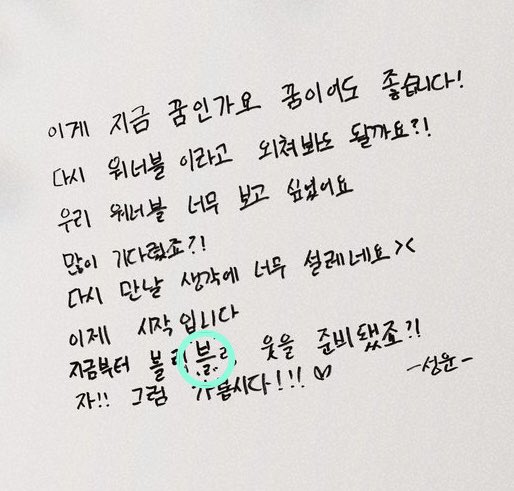 이게 지금 꿈인가요 꿈이어도 좋습니다!
다시 워너블 이라고 외쳐봐도 될까요?!
우리 워너블 너무 보고 싶었어요
많이 기다렸죠?!
다시 만날 생각에 너무 설레네요><
이제 시작입니다
지금부터 웃을 준비됐죠?!
자!! 그럼 가봅시다!!! ♡
-성운-